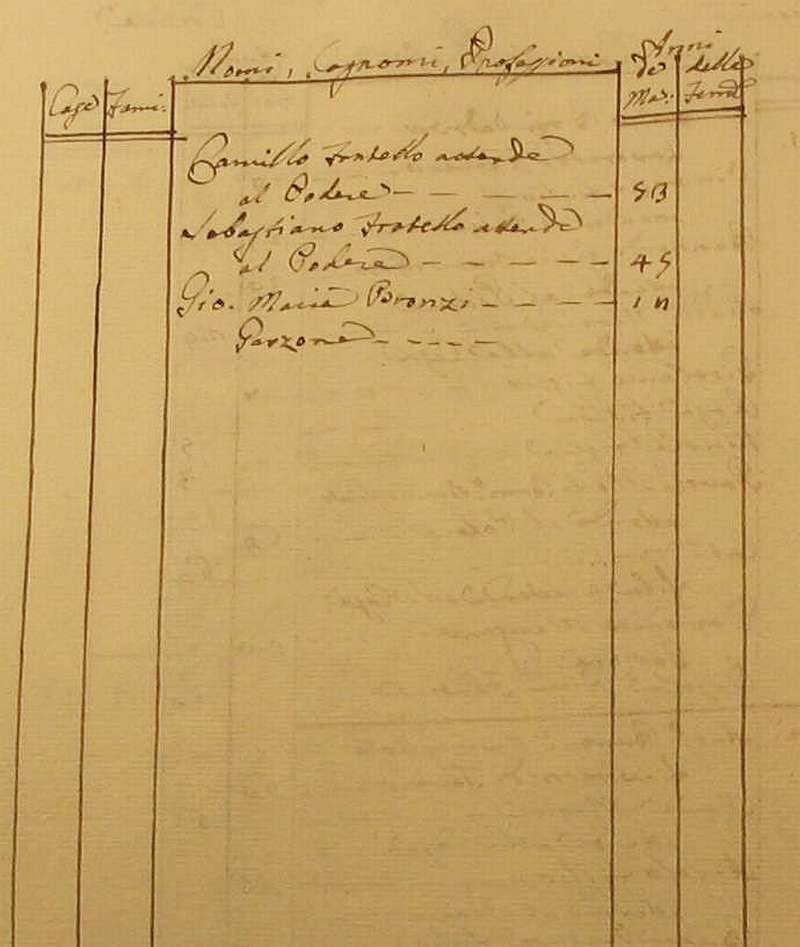 Anni
Nomi, Cognomi, Professioni de delle
Case Fami: Ma: Fem:
Camillo Fratello attende
al Podere — — — — — 53
Sebastiano Fratello attende
al Podere — — — — — 45
Gio. Maria Bronzi — — — —
Garzone — — — —